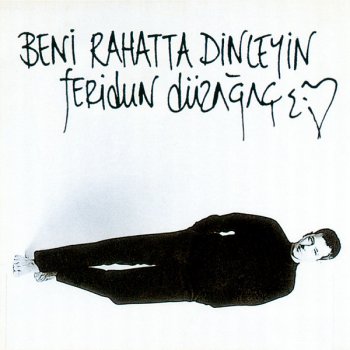 BENİ RAHATTA DİNLEYİN
feridun düzağaç